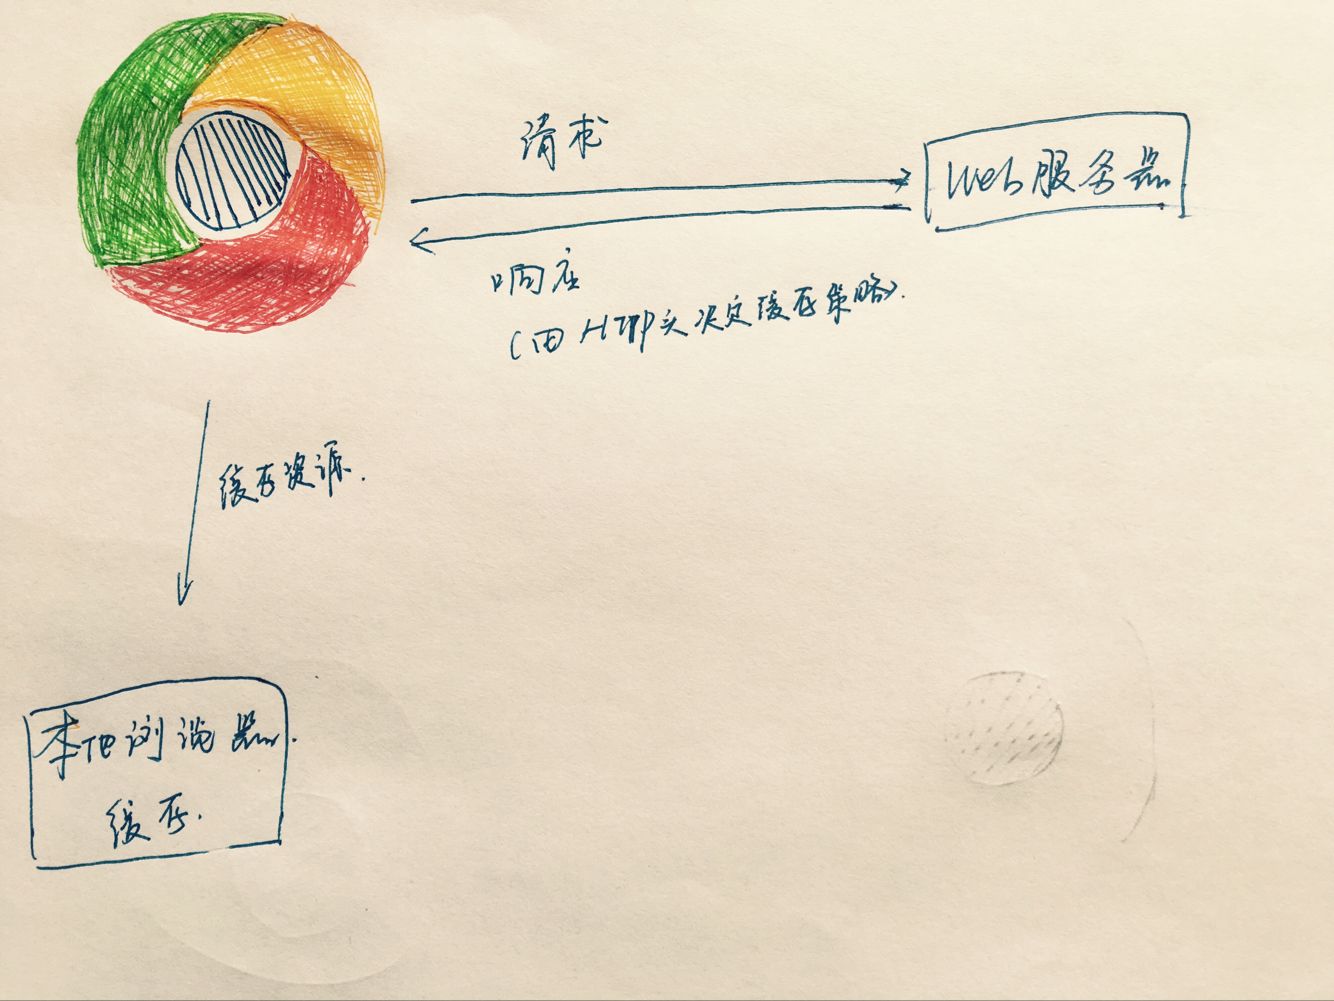 请求
Web服务器
响应
(由HTTP头决定缓存策略).
缓存资源.
本地浏览器.
缓存.